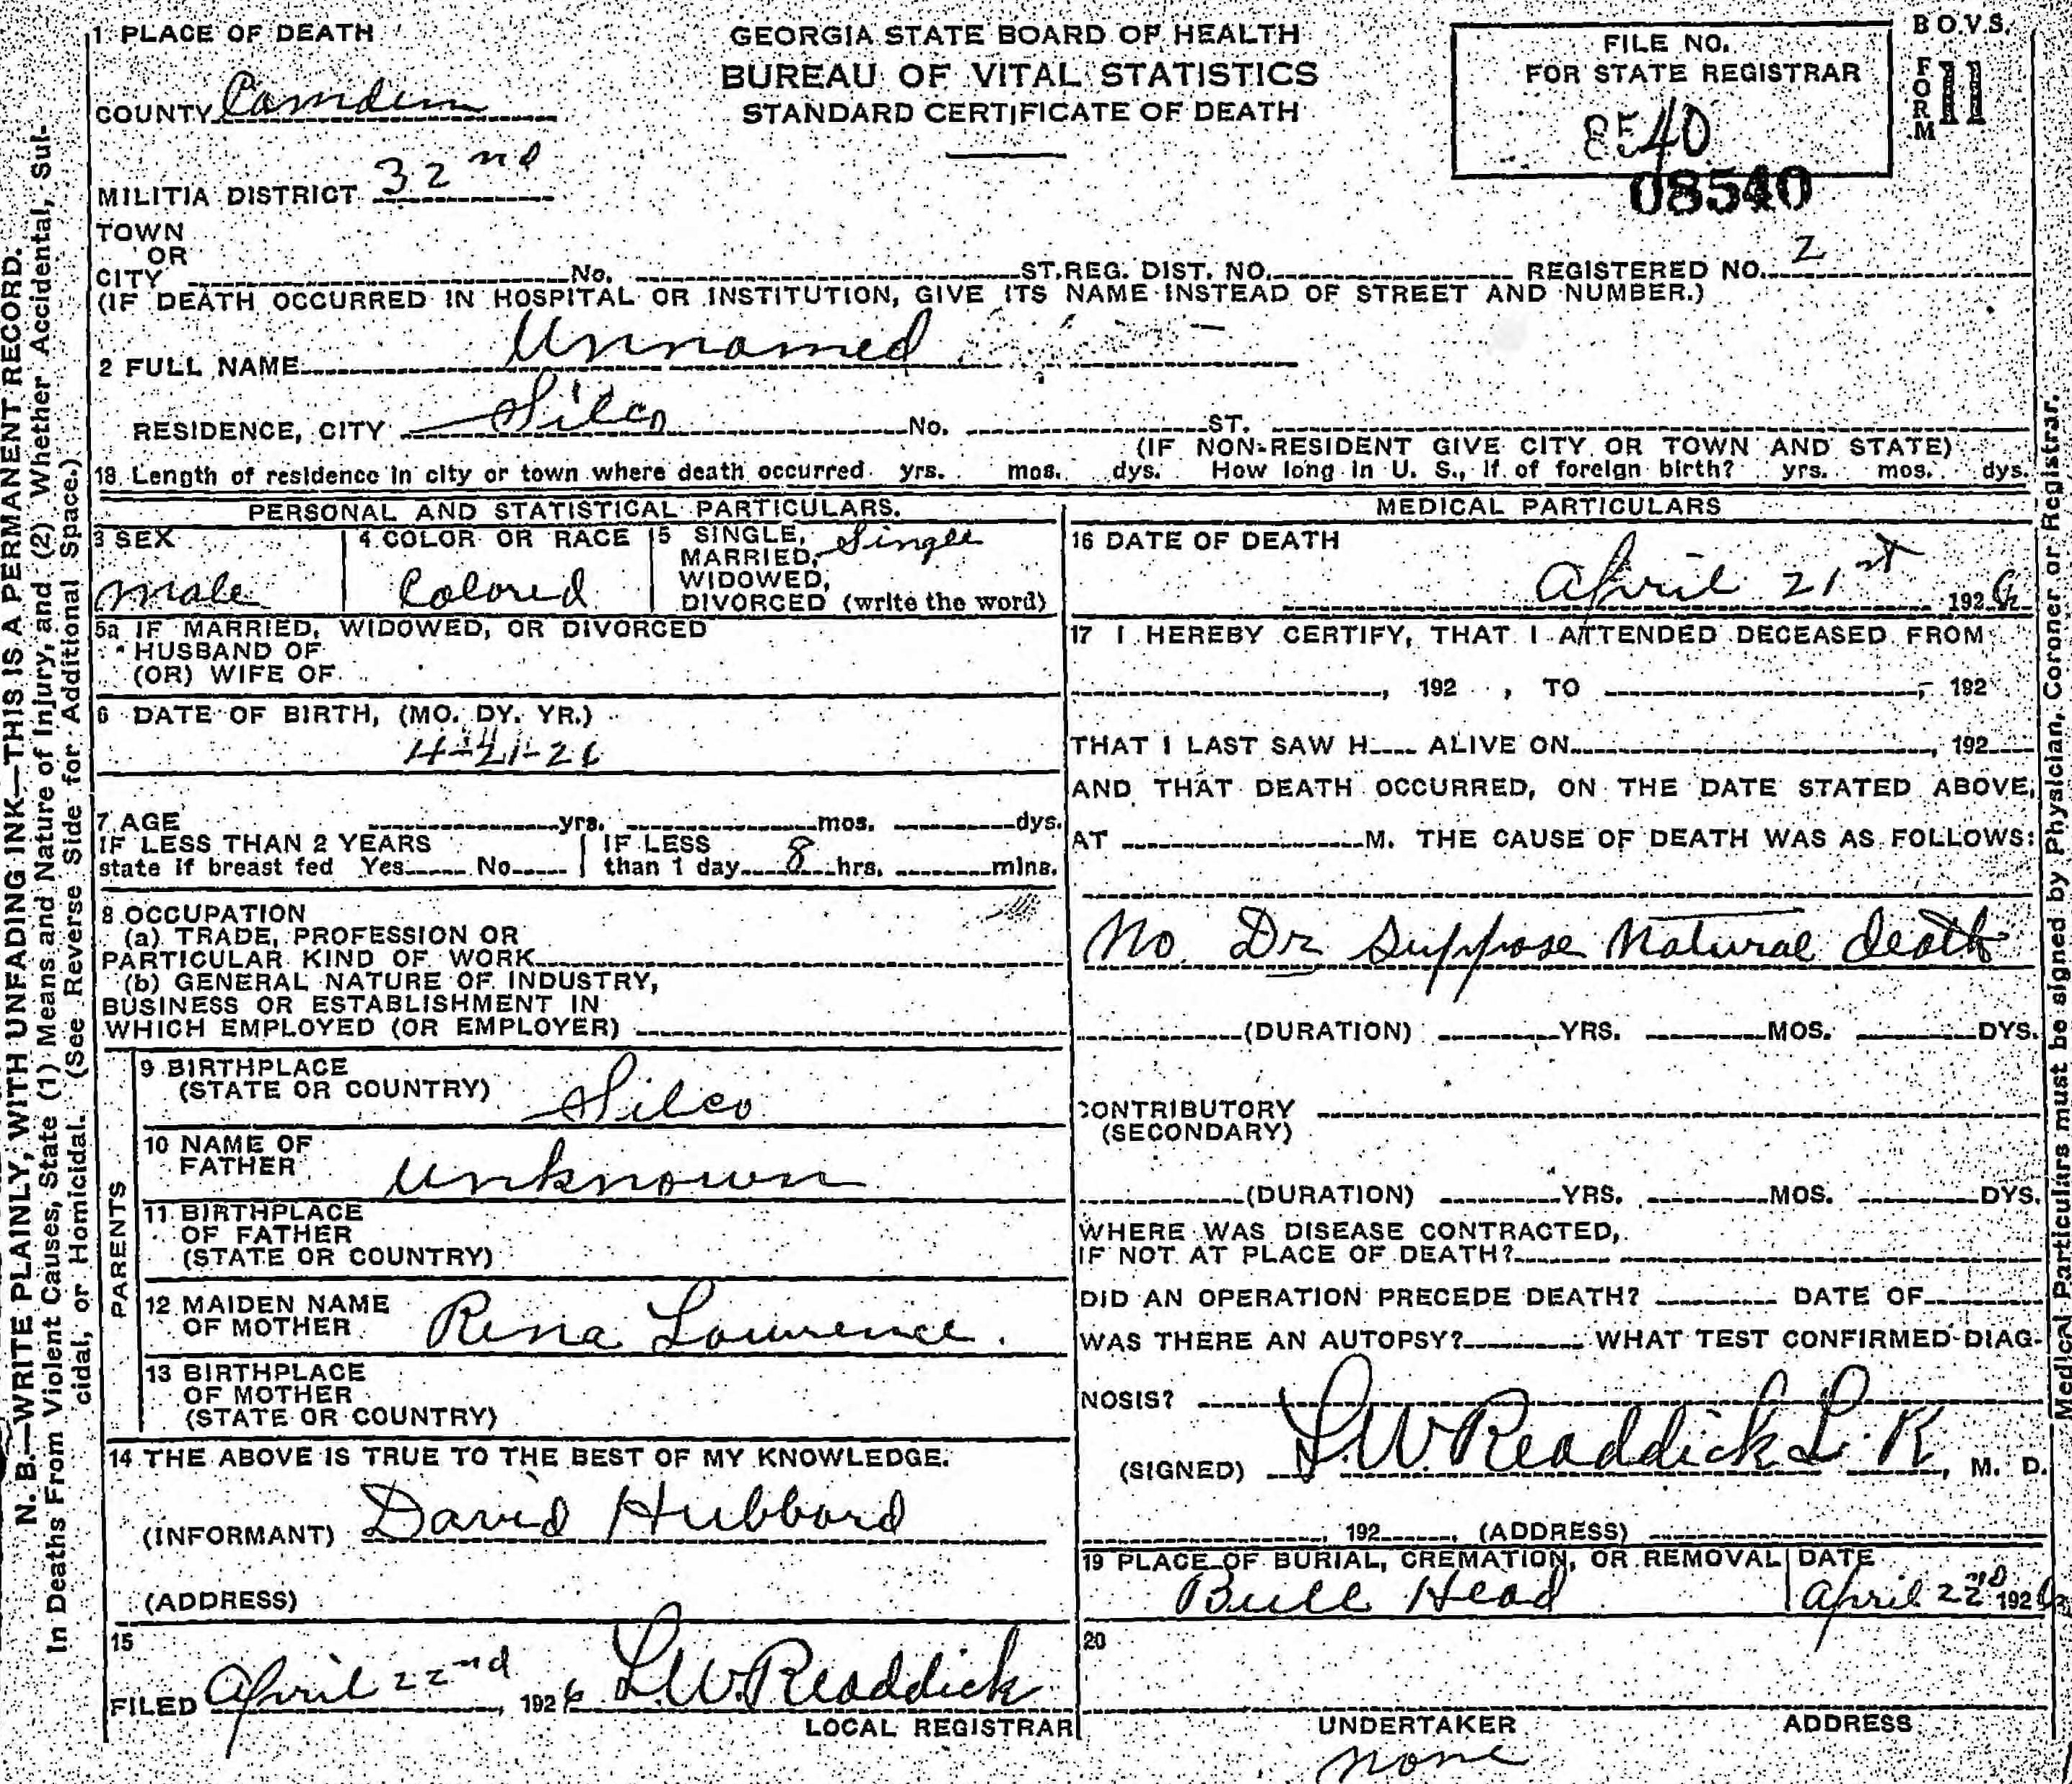 1 PLACE OF DEATH
COUNTY Camden
MILITIA DISTRICT 32nd
TOWN
OR
CITY No. ST. REG. DIST. NO. REGISTERED NO. 2
(IF DEATH OCCURRED IN HOSPITAL OR INSTITUTION, GIVE ITS NAME INSTEAD OF STREET AND NUMBER.)
GEORGIA STATE BOARD OF HEALTH
BUREAU OF VITAL STATISTICS
STANDARD CERTIFICATE OF DEATH
FILE NO.
FOR STATE REGISTRAR
8540
08540
B.O.V.S.
FORM 11
2 FULL NAME Unnamed
RESIDENCE, CITY Silco No. ST.
(IF NON-RESIDENT GIVE CITY OR TOWN AND STATE)
18 Length of residence in city or town where death occurred yrs. mos. dys. How long in U. S., if of foreign birth? yrs. mos. dys.
PERSONAL AND STATISTICAL PARTICULARS.
3 SEX
male
4 COLOR OR RACE
Colored
5 SINGLE, Single
MARRIED,
WIDOWED,
DIVORCED (write the word)
5a IF MARRIED, WIDOWED, OR DIVORCED
HUSBAND OF
(OR) WIFE OF
6 DATE OF BIRTH, (MO. DY. YR.)
4-21-26
7 AGE yrs. mos. dys.
IF LESS THAN 2 YEARS
state if breast fed Yes No
IF LESS
than 1 day 8 hrs. mins.
8 OCCUPATION
(a) TRADE, PROFESSION OR
PARTICULAR KIND OF WORK
(b) GENERAL NATURE OF INDUSTRY,
BUSINESS OR ESTABLISHMENT IN
WHICH EMPLOYED (OR EMPLOYER)
PARENTS
9 BIRTHPLACE
(STATE OR COUNTRY) Silco
10 NAME OF
FATHER unknown
11 BIRTHPLACE
OF FATHER
(STATE OR COUNTRY)
12 MAIDEN NAME
OF MOTHER Rena Lawrence.
13 BIRTHPLACE
OF MOTHER
(STATE OR COUNTRY)
14 THE ABOVE IS TRUE TO THE BEST OF MY KNOWLEDGE.
(INFORMANT) David Hubbard
(ADDRESS)
15
FILED April 22nd, 1926 L.W. Readdick
LOCAL REGISTRAR
MEDICAL PARTICULARS
16 DATE OF DEATH
April 21st 1926
17 I HEREBY CERTIFY, THAT I ATTENDED DECEASED FROM
, 192 , TO , 192
THAT I LAST SAW H ALIVE ON , 192
AND THAT DEATH OCCURRED, ON THE DATE STATED ABOVE,
AT M. THE CAUSE OF DEATH WAS AS FOLLOWS:
No Dr Suppose Natural death
(DURATION) YRS. MOS. DYS.
CONTRIBUTORY
(SECONDARY)
(DURATION) YRS. MOS. DYS.
WHERE WAS DISEASE CONTRACTED,
IF NOT AT PLACE OF DEATH?
DID AN OPERATION PRECEDE DEATH? DATE OF
WAS THERE AN AUTOPSY? WHAT TEST CONFIRMED DIAG-
NOSIS?
(SIGNED) L.W. Readdick L. R, M. D.
, 192 , (ADDRESS)
19 PLACE OF BURIAL, CREMATION, OR REMOVAL DATE
Bull Head April 22nd 1926
20
UNDERTAKER ADDRESS
none
N. B.—WRITE PLAINLY, WITH UNFADING INK—THIS IS A PERMANENT RECORD.
In Deaths From Violent Causes, State (1) Means and Nature of Injury, and (2) Whether Accidental, Sui-
cidal, or Homicidal. (See Reverse Side for Additional Space.)
Medical Particulars must be signed by Physician, Coroner or Registrar.